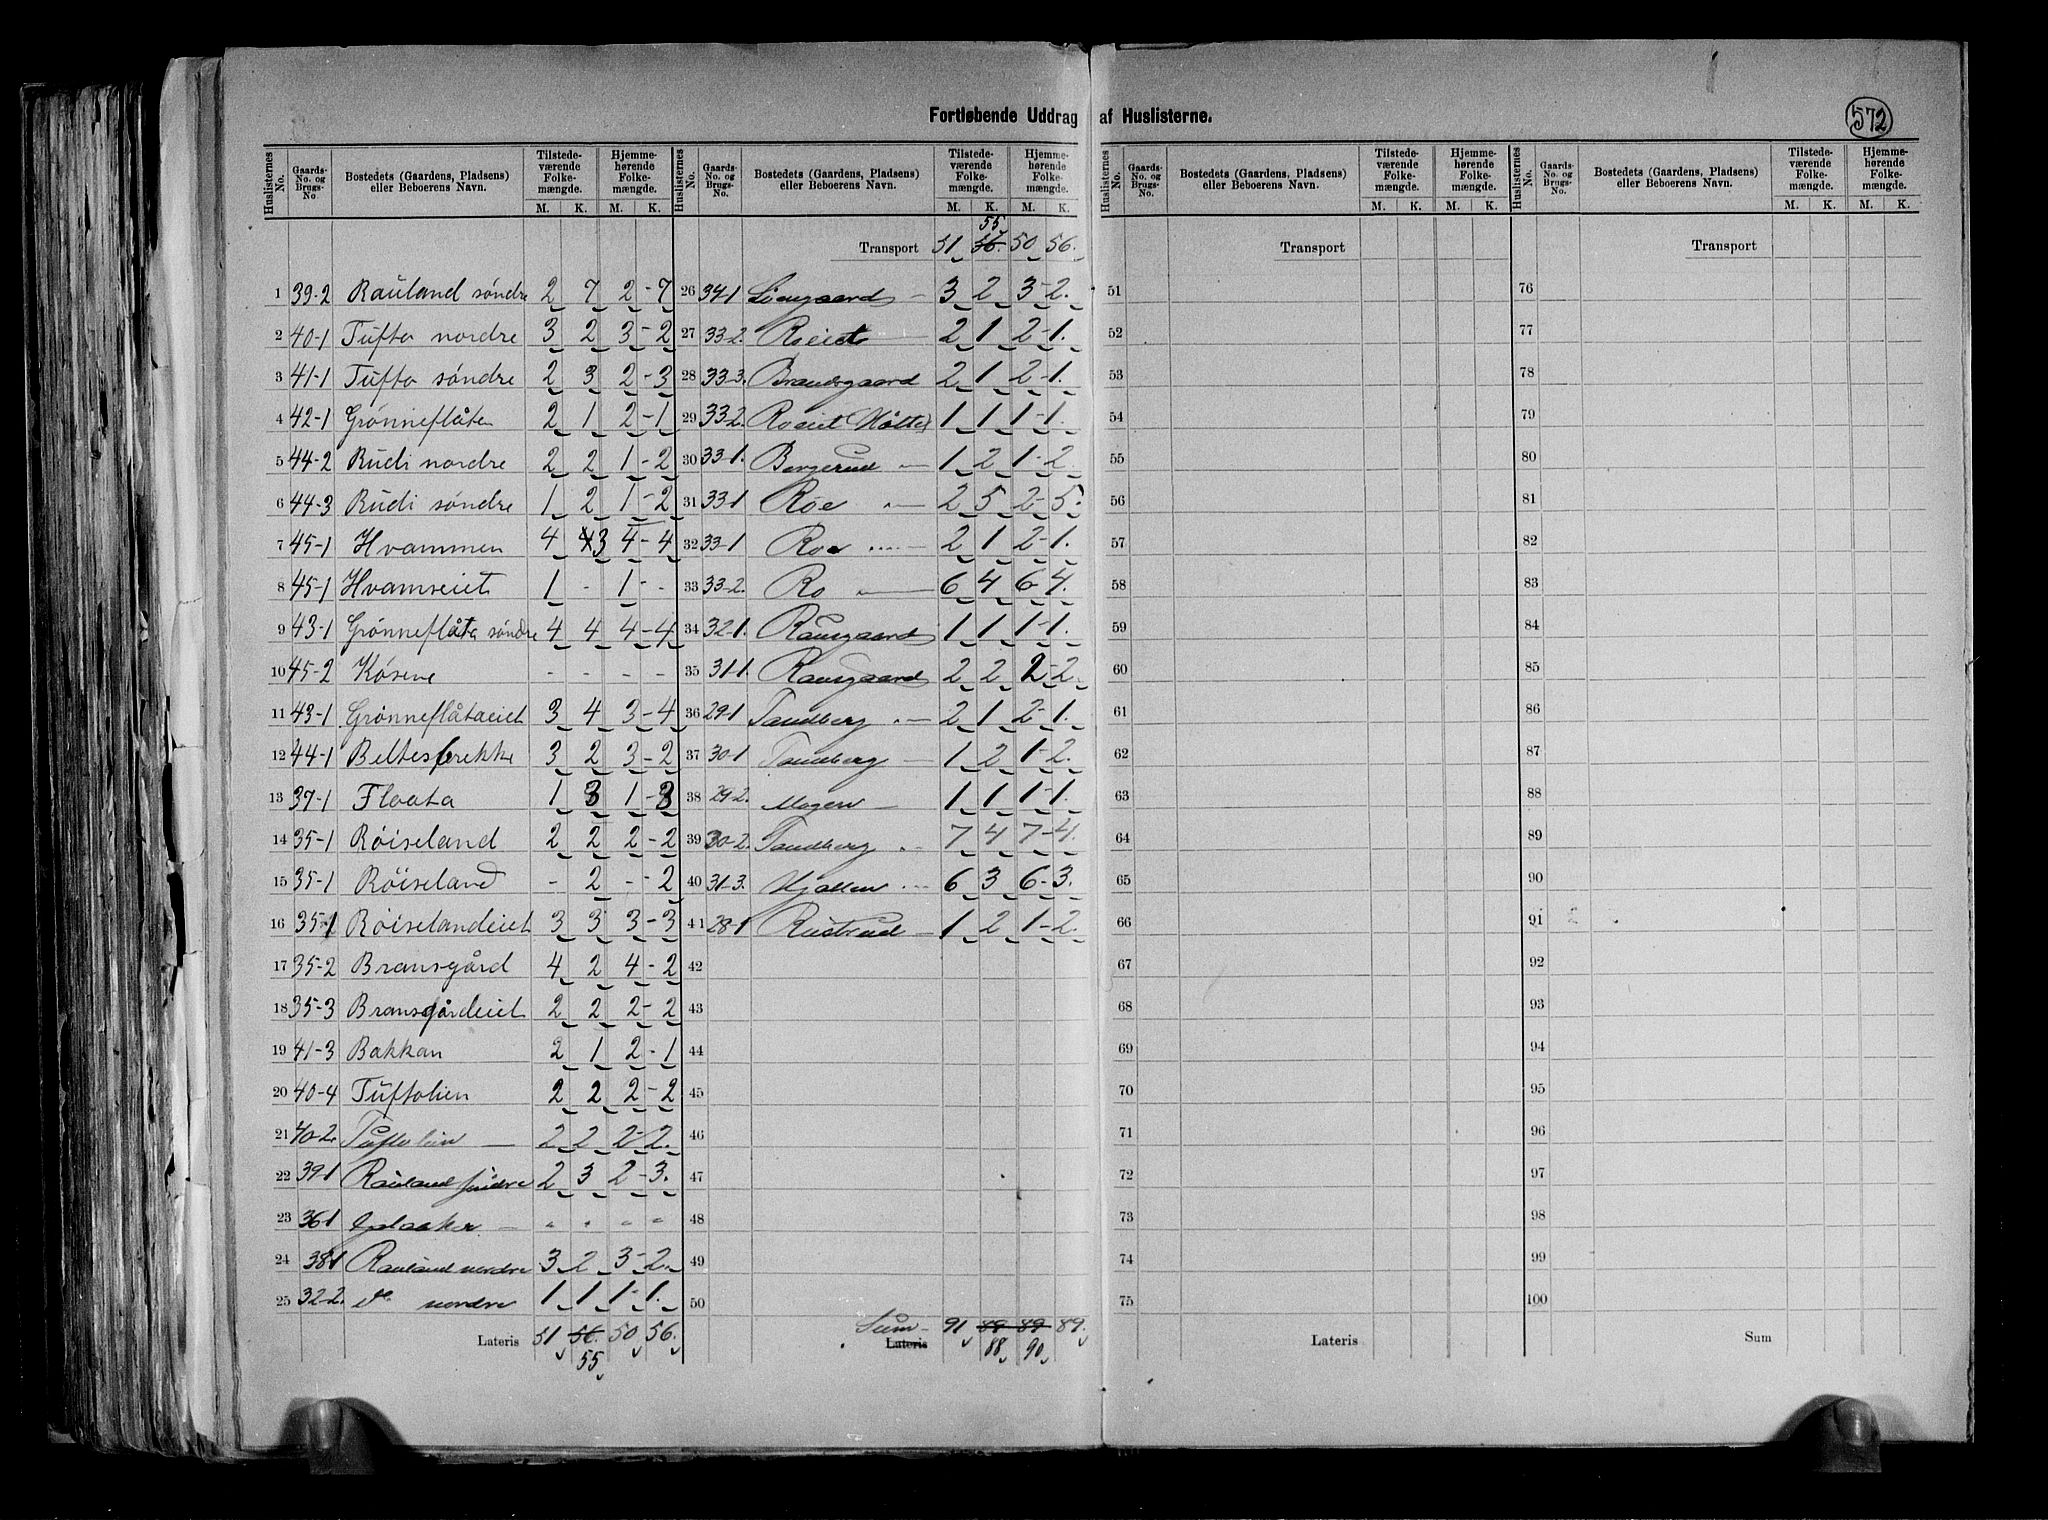 Fortløbende Uddrag af Huslisterne.
572
Huslisternes No. Gaards-No. og Brugs-No. Bostedets (Gaardens, Pladsens) eller Beboerens Navn. Tilstedeværende Folkemængde. M. K. Hjemmehørende Folkemængde. M. K.
1 39-2 Rauland søndre 2 7 2-7
2 40-1 Tufto nordre 3 2 3-2
3 41-1 Tufto søndre 2 3 2-3
4 42-1 Grønneflåten 2 1 2-1
5 44-2 Rudi nordre 2 2 1-2
6 44-3 Rudi søndre 1 2 1-2
7 45-1 Hvammen 4 3 4-4
8 45-1 Hvamseiet 1 - 1 -
9 43-1 Grønneflåta søndre 4 4 4-4
10 45-2 Køsene - - - -
11 43-1 Grønneflåtaeiet 3 4 3-4
12 44-1 Beltesbrekke 3 2 3-2
13 37-1 Floata 1 3 1-3
14 35-1 Røiseland 2 2 2-2
15 35-1 Røiseland - 2 - 2
16 35-1 Røiselandeiet 3 3 3-3
17 35-2 Bransgård 4 2 4-2
18 35-3 Bransgårdeiet 2 2 2-2
19 41-3 Bakkan 2 1 2-1
20 40-4 Tuftolien 2 2 2-2
21 40-2. Tuftolien 2 2 2-2.
22 39-1 Rauland søndre 2 3 2-3.
23 36-1 " " " "
24 38-1 Rauland nordre 3 2 3-2.
25 32-2. do nordre 1 1 1-1.
Lateris 51 56. 50 56.
55
Huslisternes No. Gaards-No. og Brugs-No. Bostedets (Gaardens, Pladsens) eller Beboerens Navn. Tilstedeværende Folkemængde. M. K. Hjemmehørende Folkemængde. M. K.
55
Transport 51 56. 50 56.
26 34-1 3 2 3-2.
27 33-2. Roeiet 2 1 2-1.
28 33-3. Bransgaard 2 1 2-1.
29 33-2. Roeiet 1 1 1-1.
30 33-1. Bergerud 1 2 1-2
31 33-1 Roe 2 5 2-5.
32 33-1 Roe 2 1 2-1.
33 33-2. Ro 6 4 6-4.
34 32-1. Ramsgaard 1 1 1-1.
35 31-1. Ramsgaard 2 2 2-2.
36 29-1 Sandberg 2 1 2-1.
37 30-1 Sandberg 1 2 1-2.
38 29-2. Mogen 1 1 1-1.
39 30-2. Sandberg 7 4 7-4.
40 31-3. Hjallen 6 3 6-3.
41 28-1 Rustrud 1 2 1-2.
42
43
44
45
46
47
48
49
50
Sum 91 89 89 89.
Lateris 88 90
Huslisternes No. Gaards-No. og Brugs-No. Bostedets (Gaardens, Pladsens) eller Beboerens Navn. Tilstedeværende Folkemængde. M. K. Hjemmehørende Folkemængde. M. K.
Transport
51
52
53
54
55
56
57
58
59
60
61
62
63
64
65
66
67
68
69
70
71
72
73
74
75
Lateris
Huslisternes No. Gaards-No. og Brugs-No. Bostedets (Gaardens, Pladsens) eller Beboerens Navn. Tilstedeværende Folkemængde. M. K. Hjemmehørende Folkemængde. M. K.
Transport
76
77
78
79
80
81
82
83
84
85
86
87
88
89
90
91
92
93
94
95
96
97
98
99
100
Sum